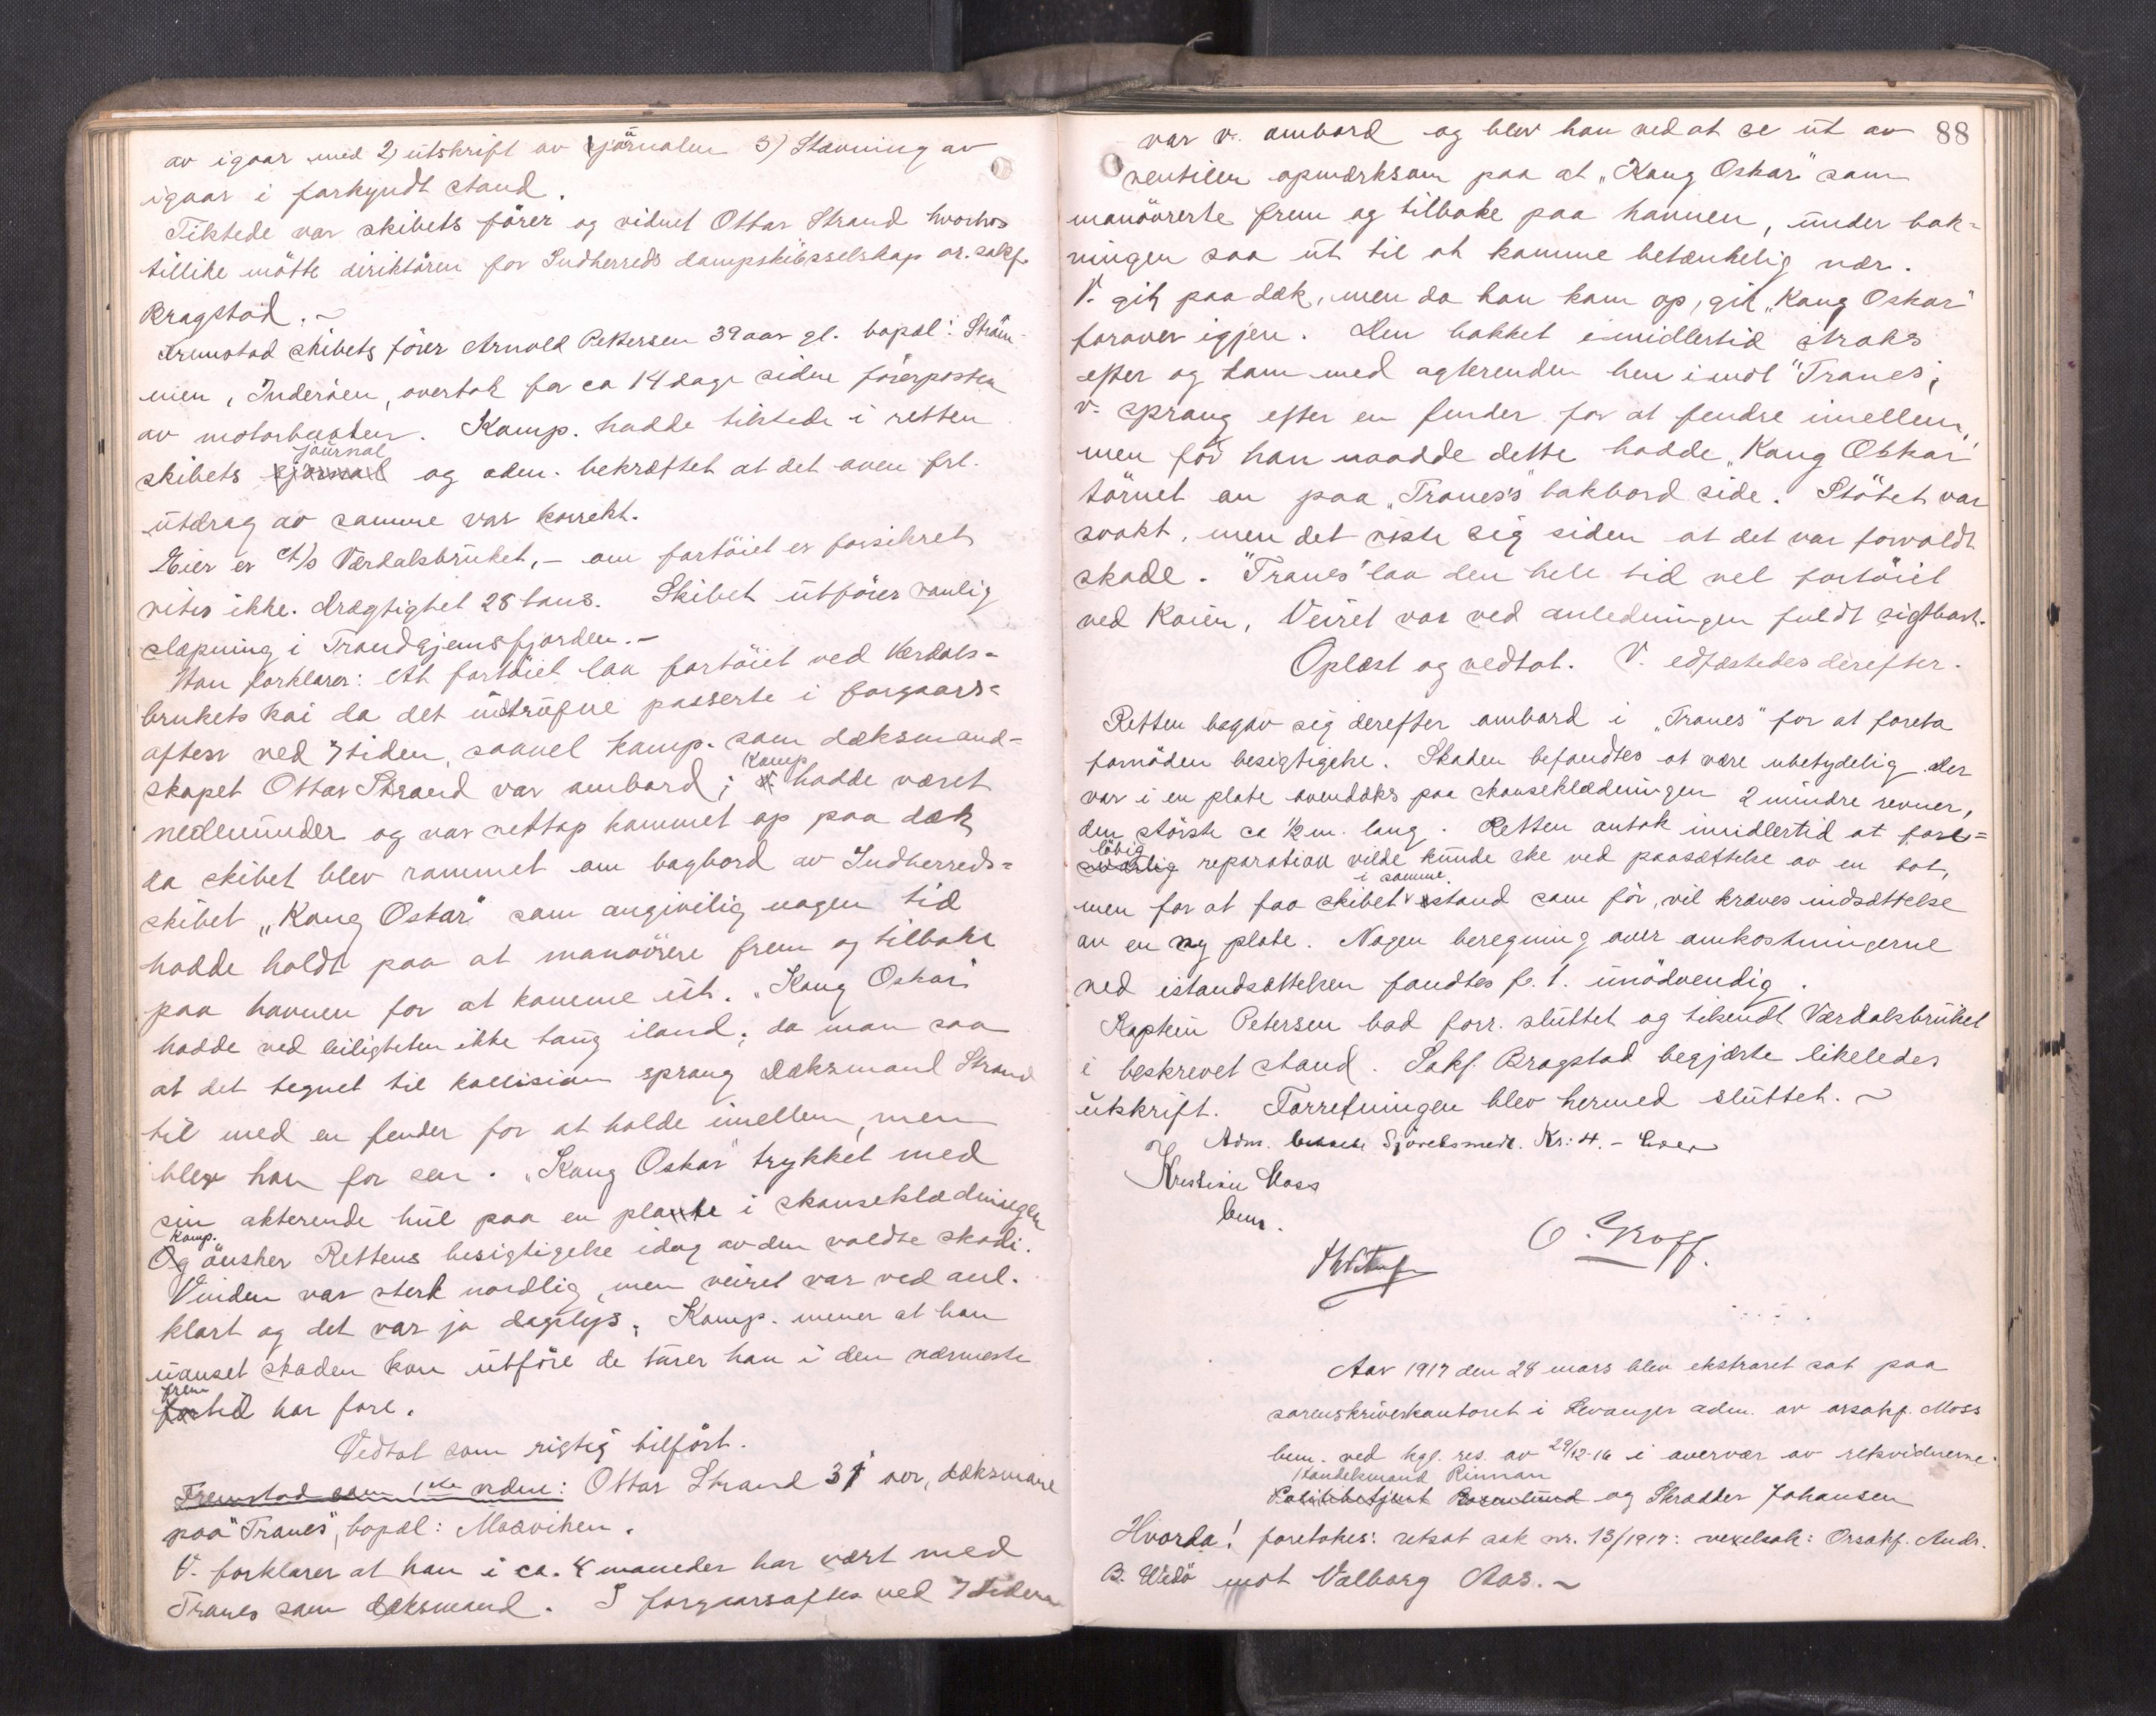 av igaar med 2) utskrift av journalen 3) Stævning av
igaar i forkyndt stand.
Tilstede var skibets fører og vidnet Ottar Strand hvorhos
tillike møtte direktøren for Indherreds dampskibsselskap or. sakf.
Bragstad. ~
Fremstod skibets fører Arnold Petersen 39 aar gl. bopæl: Strøm-
men, Inderøen, overtok for ca 14 dage siden førerposten
av motorbaaten. Komp. hadde tilstede i retten
skibets journal og adm. bekræftet at det oven frl.
utdrag av samme var korrekt.
Eier er A/s Værdalsbruket, - om fartøiet er forsikret
vites ikke. Drægtighet 28 tons. Skibet utfører vanlig
slæpning i Trondhjemsfjorden. -
Han forklarer: At fartøiet laa fortøiet ved Værdals-
brukets kai da det indtrufne passerte i forgaars-
aftes ved 7 tiden, saavel komp. som dæksmand-
skapet Ottar Strand var ombord; Komp hadde været
nedenunder og var netop kommet op paa dæk
da skibet blev rammet om bagbord av Indherreds-
skibet „Kong Oskar" som angivelig nogen tid
hadde holdt paa at manøvrere frem og tilbake
paa havnen for at komme ut. „Kong Oskar"
hadde ved leiligheten ikke taug iland; da man saa
at det tegnet til kollision sprang dæksmand Strand
til med en fender for at holde imellem, men
blev han for sen. „Kong Oskar" trykket med
sin akterende hul paa en plate i skanseklædningen
Komp. ønsker Rettens besigtigelse idag av den voldte skade.
Vinden var sterk nordlig, men veiret var ved anl.
klart og det var jo dagslys. Komp. mener at han
uanset skaden kan utføre de turer han i den nærmeste
fremtid har fore.
Vedtat som rigtig tilført.
Fremstod som 1ste vidne: Ottar Strand 31 aar, dæksmand
paa "Tranes", bopæl: Mosviken.
V. forklarer at han i ca. 8 maaneder har vært med
Tranes som dæksmand. I forgaarsaftes ved 7 tiden
88
var v. ombord og blev han ved at se ut av
ventilen opmerksom paa at „Kong Oskar" som
manøvrerte frem og tilbake paa havnen, under bak-
ningen saa ut til at komme betænkelig nær.
V. gik paa dæk, men da han kom op, gik „Kong Oskar"
forover igjen. Den bakket imidlertid straks
efter og kom med agterenden hen imot "Tranes",
v. sprang efter en fender for at fendre imellem,
men før han naadde dette hadde „Kong Oskar"
tørnet an paa „Tranes's bakbord side. Støtet var
svakt, men det viste sig siden at det var forvoldt
skade. "Tranes" laa den hele tid vel fortøiet
ved kaien, Veiret var ved anledningen fuldt sigtbart.
Oplæst og vedtat. V. edfæstedes derefter.
Retten begav sig derefter ombord i „Tranes" for at foreta
fornøden besigtigelse. Skaden befandtes at være ubetydelig. Der
var i en plate ovendæks paa skanseklædningen 2 mindre revner,
den største ca ½ m. lang. Retten antok imidlertid at fore-
løbig reparation vilde kunde ske ved paasættelse av en bot,
men for at faa skibet i samme stand som før, vil kræves indsættelse
av en ny plate. Nogen beregning over omkostningerne
ved istandsættelsen fandtes f. t. unødvendig.
Kaptein Petersen bad forr. sluttet og tilsendt Værdalsbruket
i beskrevet stand. Sakf. Bragstad begjærte likeledes
utskrift. Forretningen blev hermed sluttet. ~
Adm. Sjøretsmedl. Kr: 4. -
Kristian Moss
bem.
O. Groff.
Aar 1917 den 28 mars blev ekstraret sat paa
sorenskriverkontoret i Levanger adm. av orsakf. Moss
bem. ved kgl. res. av 29/12-16 i overvær av retsvidnerne
Handelsmand Rinnan
Politibetjent Rosenlund og Skrædder Johansen
Hvorda! foretokes: retsat sak nr. 13/1917: vexelsak: Orsakf. Andr.
B. Wedø mot Valborg Aas. ~